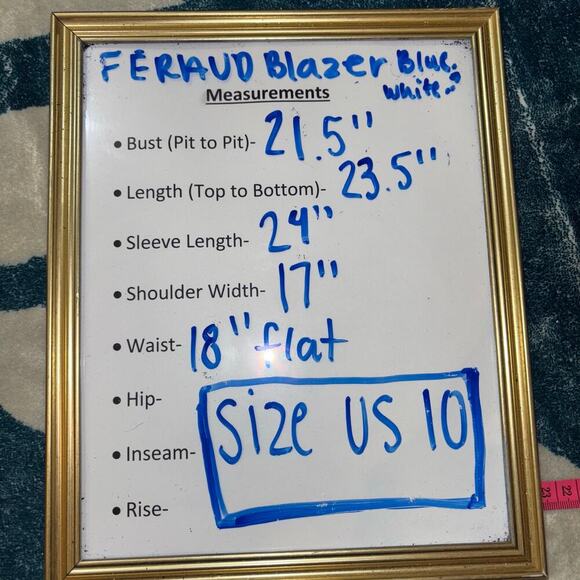 FERAUD Blazer Blue.
Measurements white
• Bust (Pit to Pit)- 21.5"
• Length (Top to Bottom)- 23.5"
• Sleeve Length- 24"
• Shoulder Width- 17"
• Waist- 18" flat
• Hip-
Size US 10
• Inseam-
• Rise-
23 22